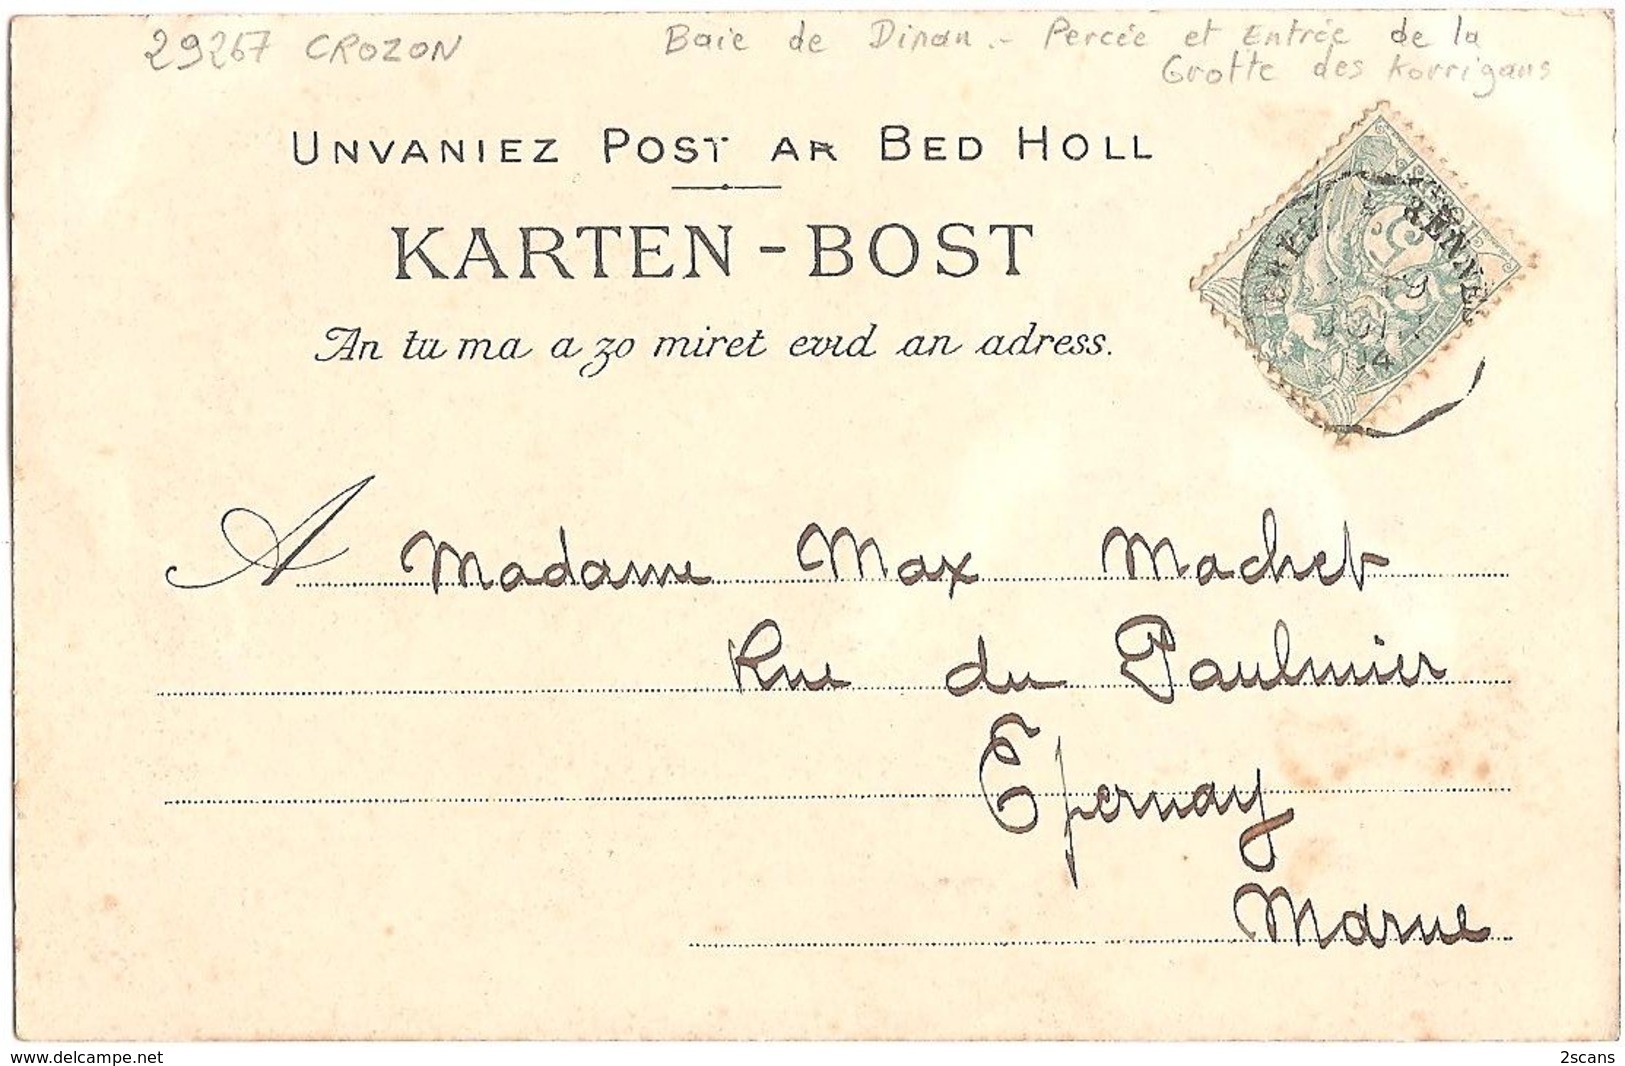 29267 CROZON
Baie de Dinan.- Percée et Entrée de la
Grotte des Korrigans
UNVANIEZ POST AR BED HOLL
KARTEN-BOST
An tu ma a zo miret evid an adress.
RENNES
A Madame Max Machet
Rue du Paulmier
Epernay
Marne
www.delcampe.net
2scans